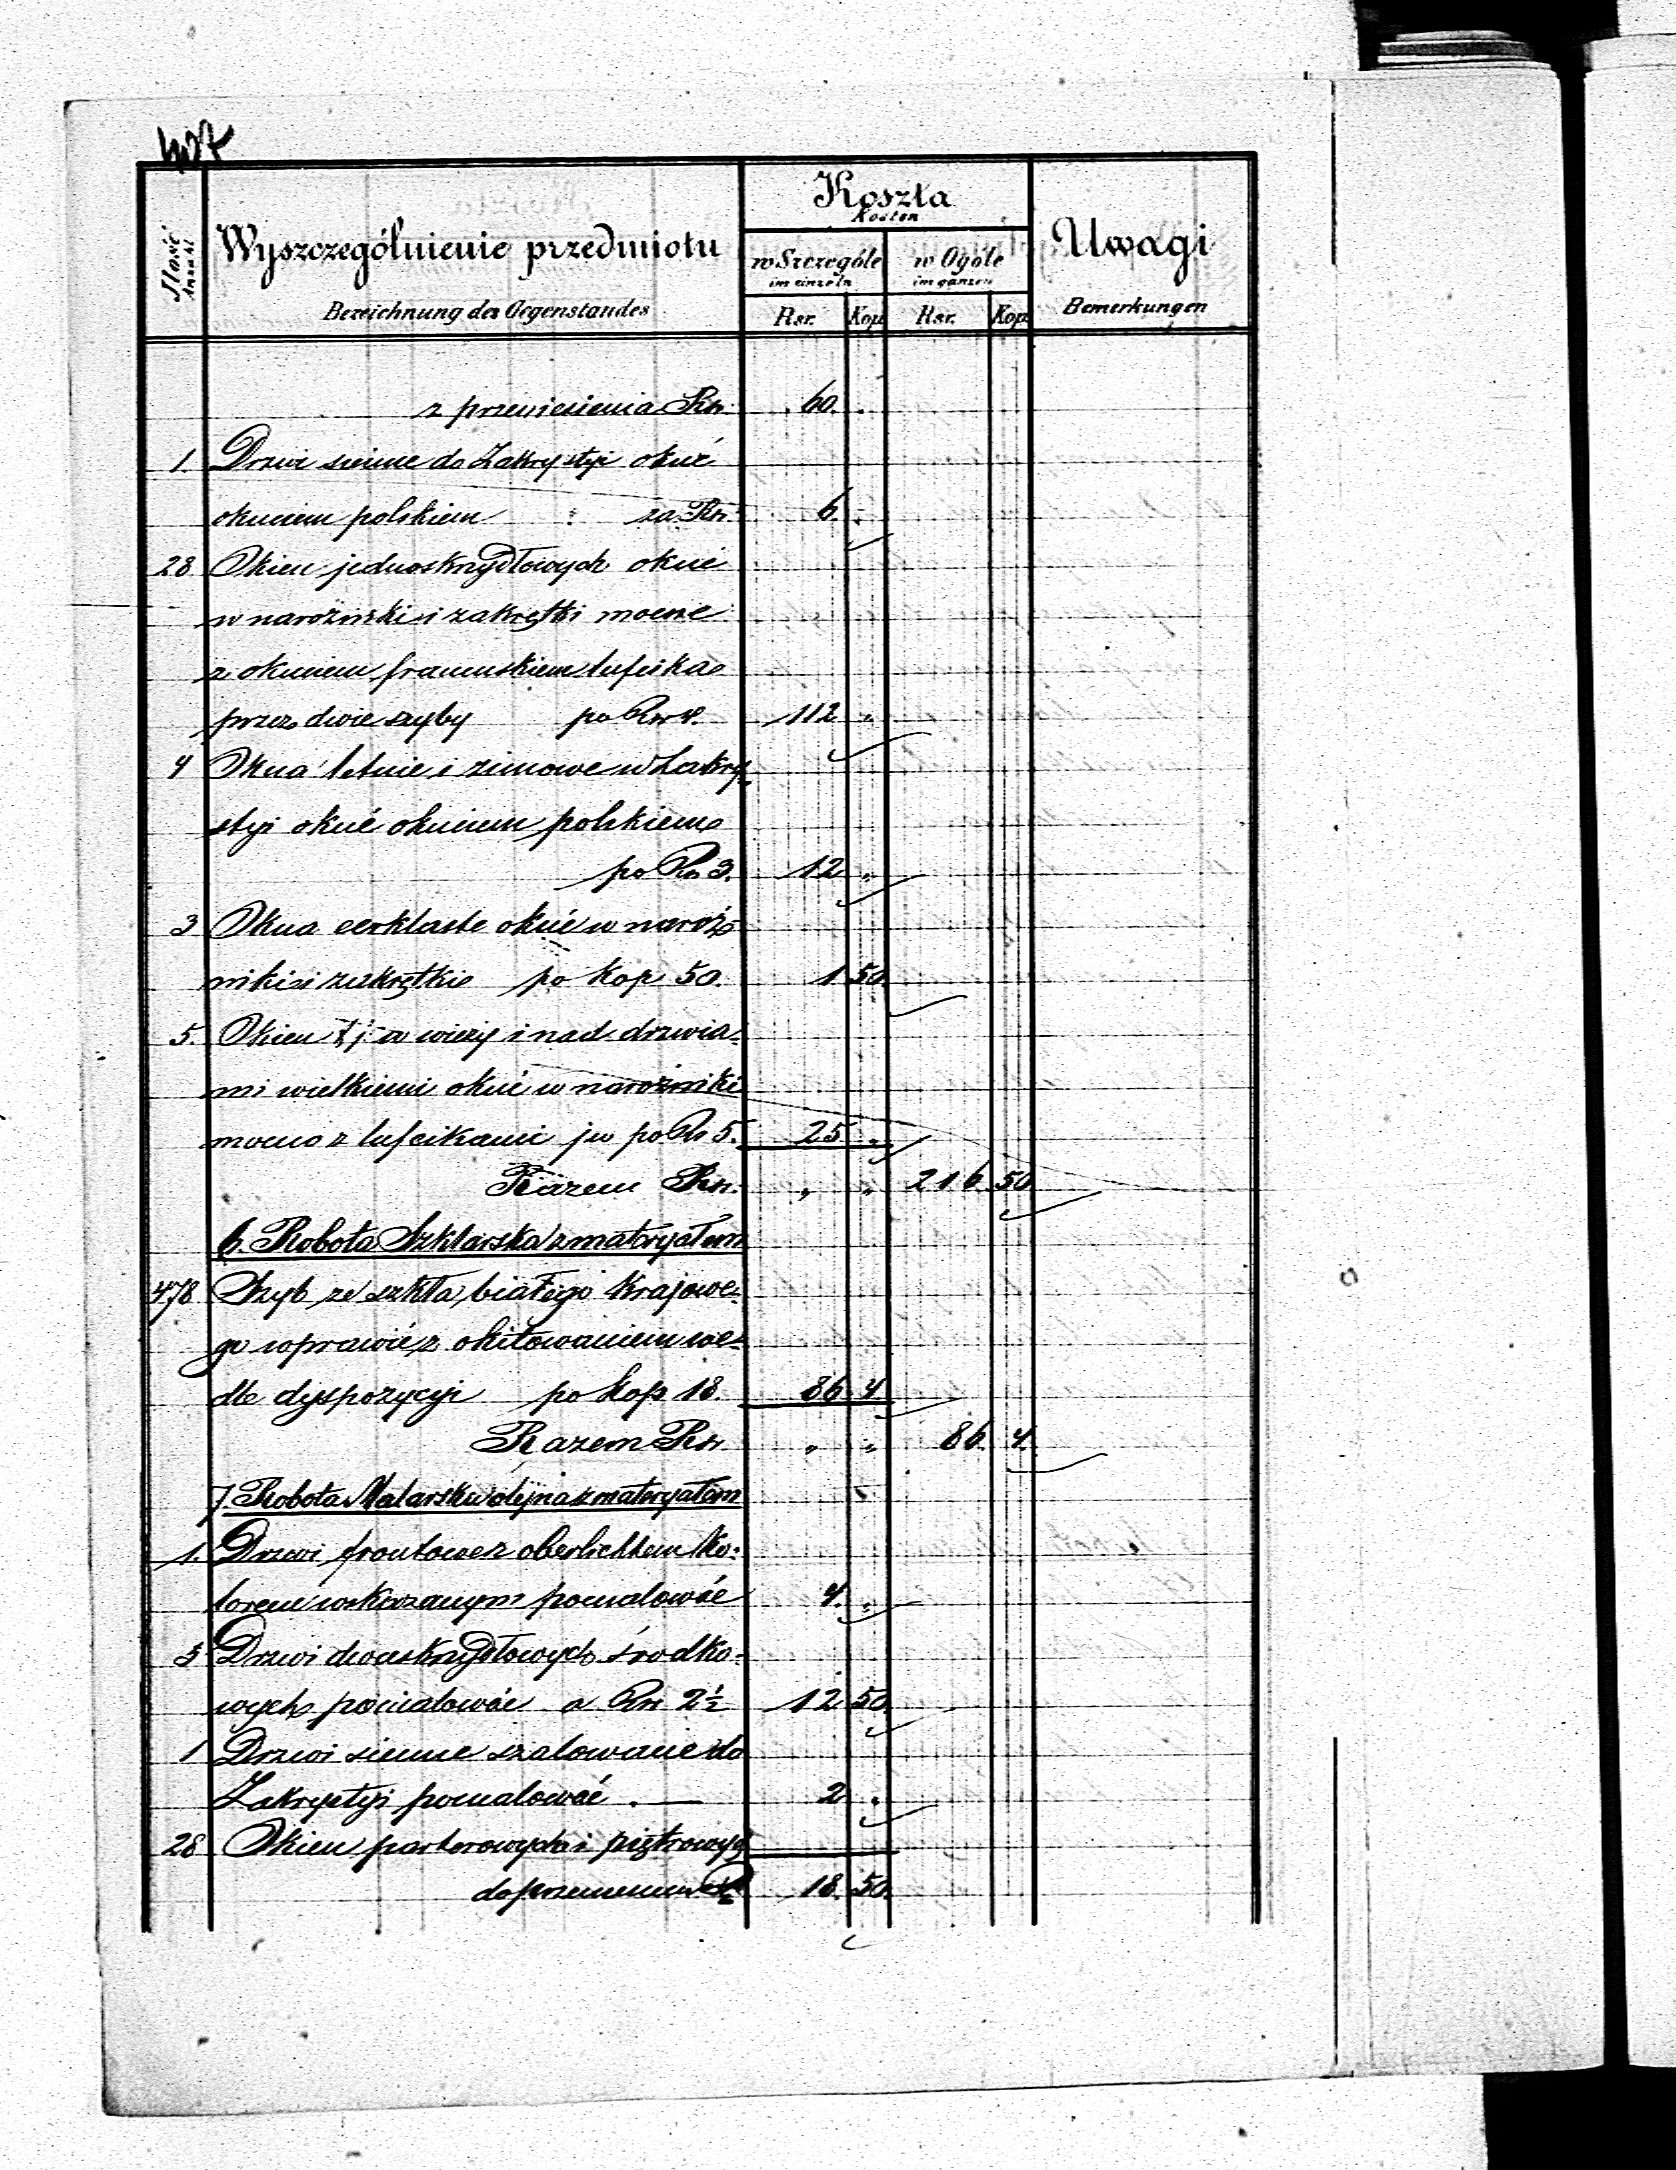 407
Ilość Wyszczególnienie przedmiotu Koszta Uwagi
Anzahl Bezeichnung des Gegenstandes Kosten Bemerkungen
w Szczególe w Ogóle
im einzeln im ganzen
Rsr. Kop. Rsr. Kop.
z przeniesienia Rsr. 60 "
1. Drzwi sienne do Zakrystyi okuć
okuciem polskiem za Rsr. 6 "
28 Okien jednoskrzydłowych okuć
w narożniki i zakrętki mocne
z okuciem francuskiem lufcika
przez dwie szyby po Rsr 4. 112 "
4 Okna letnie i zimowe w Zakry=
styi okuć okuciem polskiem
po Rs 3. 12 "
3 Okna cerklaste okuć w naroż=
niki i zakrętki po kop 50. 1 50
5. Okien t. j. w wieży i nad drzwia=
mi wielkiemi okuć w narożniki
mocno z lufcikami jw po Rs 5. 25 "
Razem Rsr. " " 216 50
6. Robota Szklarska z materyałem
478 Szyb ze szkła białego krajowe=
go wprawić z okitowaniem we=
dle dyspozycyi po kop 18. 86 4
Razem Rsr " " 86 4.
7. Robota Malarska olejna z materyałem
1. Drzwi frontowe z oberlichtem ko=
lorem wskazanym pomalować 4. "
5 Drzwi dwuskrzydłowych środko=
wych pomalować a Rsr 2½ 12 50
1 Drzwi sienne szalowane do
Zakrystyi pomalować . — 2 "
28 Okien parterowych i piętrowych
do przeniesienia Rs 18. 50.